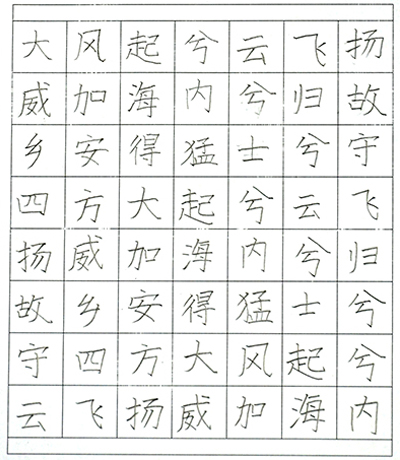 大风起兮云飞扬
威加海内兮归故
乡安得猛士兮守
四方大起兮云飞
扬威加海内兮归
故乡安得猛士兮
守四方大风起兮
云飞扬威加海内